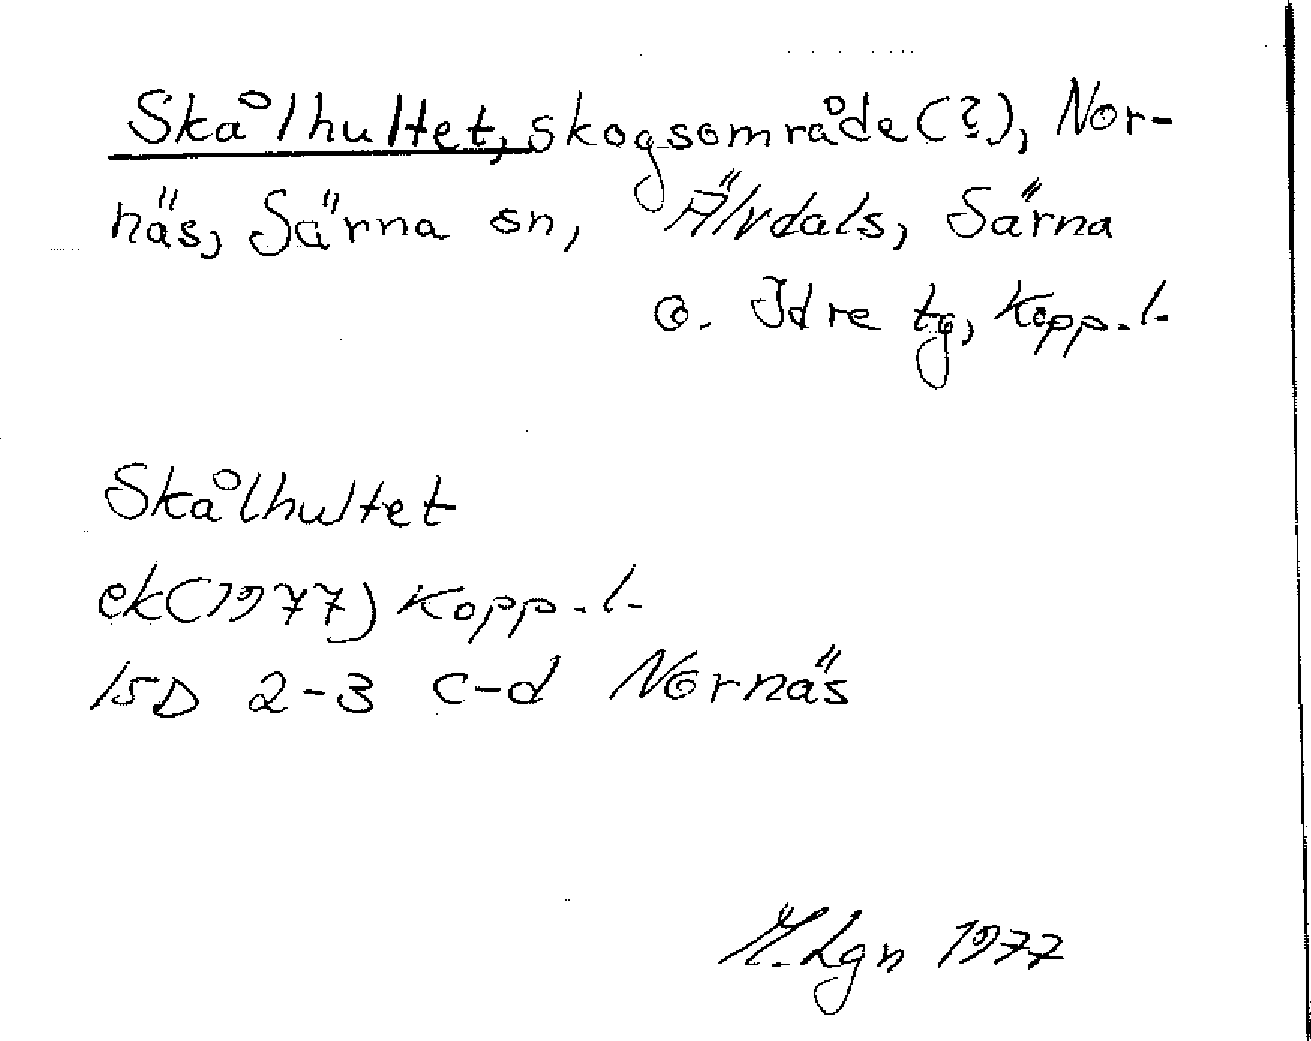 Skålhultet, skogsområde (?), Nor-
näs, Särna sn, Älvdals, Särna
o. Idre tg, Kopp.l.
Skålhultet
ek (1977) Kopp.l.
15D 2-3 c-d Nornäs
Lgn 1977